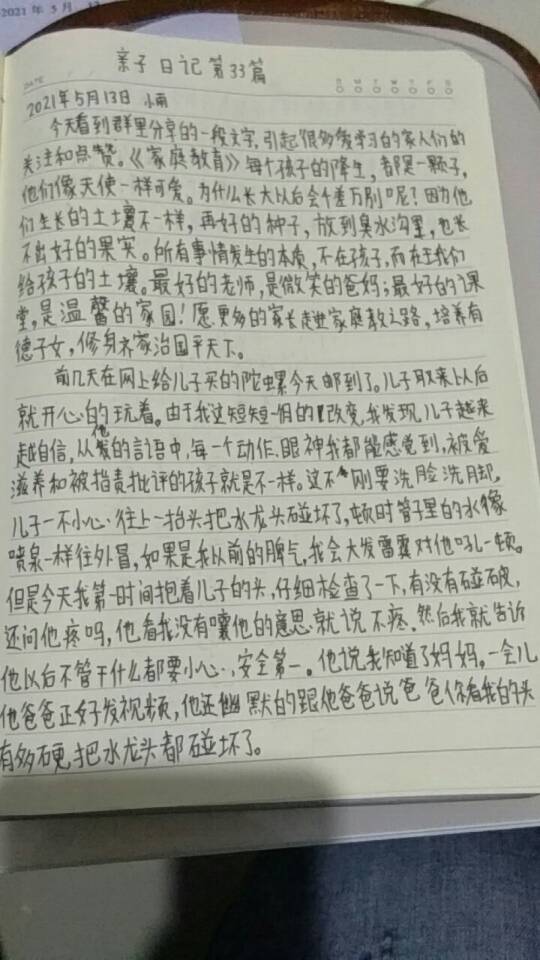 2021年5月
亲子日记第33篇
DATE
S M T W T F S
2021年5月13日 小雨
今天看到群里分享的一段文字,引起很多爱学习的家人们的
关注和点赞。《家庭教育》每个孩子的降生,都是一颗子,
他们像天使一样可爱。为什么长大以后会千差万别呢?因为他
们生长的土壤不一样,再好的种子,放到臭水沟里,也长
不出好的果实。所有事情发生的本质,不在孩子,而在我们
给孩子的土壤。最好的老师,是微笑的爸妈;最好的课
堂,是温馨的家园!愿更多的家长走进家庭教之路,培养有
德子女,修身齐家治国平天下。
前几天在网上给儿子买的陀螺今天邮到了。儿子取来以后
就开心的玩着。由于我这短短一月的改变,我发现儿子越来
越自信,从他的言语中,每一个动作.眼神我都能感觉到,被爱
滋养和被指责批评的孩子就是不一样。这不刚要洗脸洗脚,
儿子一不小心往上一抬头把水龙头碰坏了,顿时管子里的水像
喷泉一样往外冒,如果是我以前的脾气,我会大发雷霆对他吼一顿。
但是今天我第一时间抱着儿子的头,仔细检查了一下,有没有碰破,
还问他疼吗,他看我没有嚷他的意思就说不疼.然后我就告诉
他以后不管干什么都要小心,安全第一。他说我知道了妈妈。一会儿
他爸爸正好发视频,他还幽默的跟他爸爸说爸爸你看我的头
有多硬,把水龙头都碰坏了。